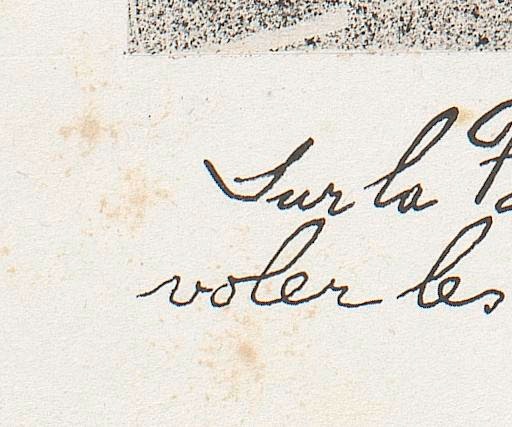 Sur la
voler les